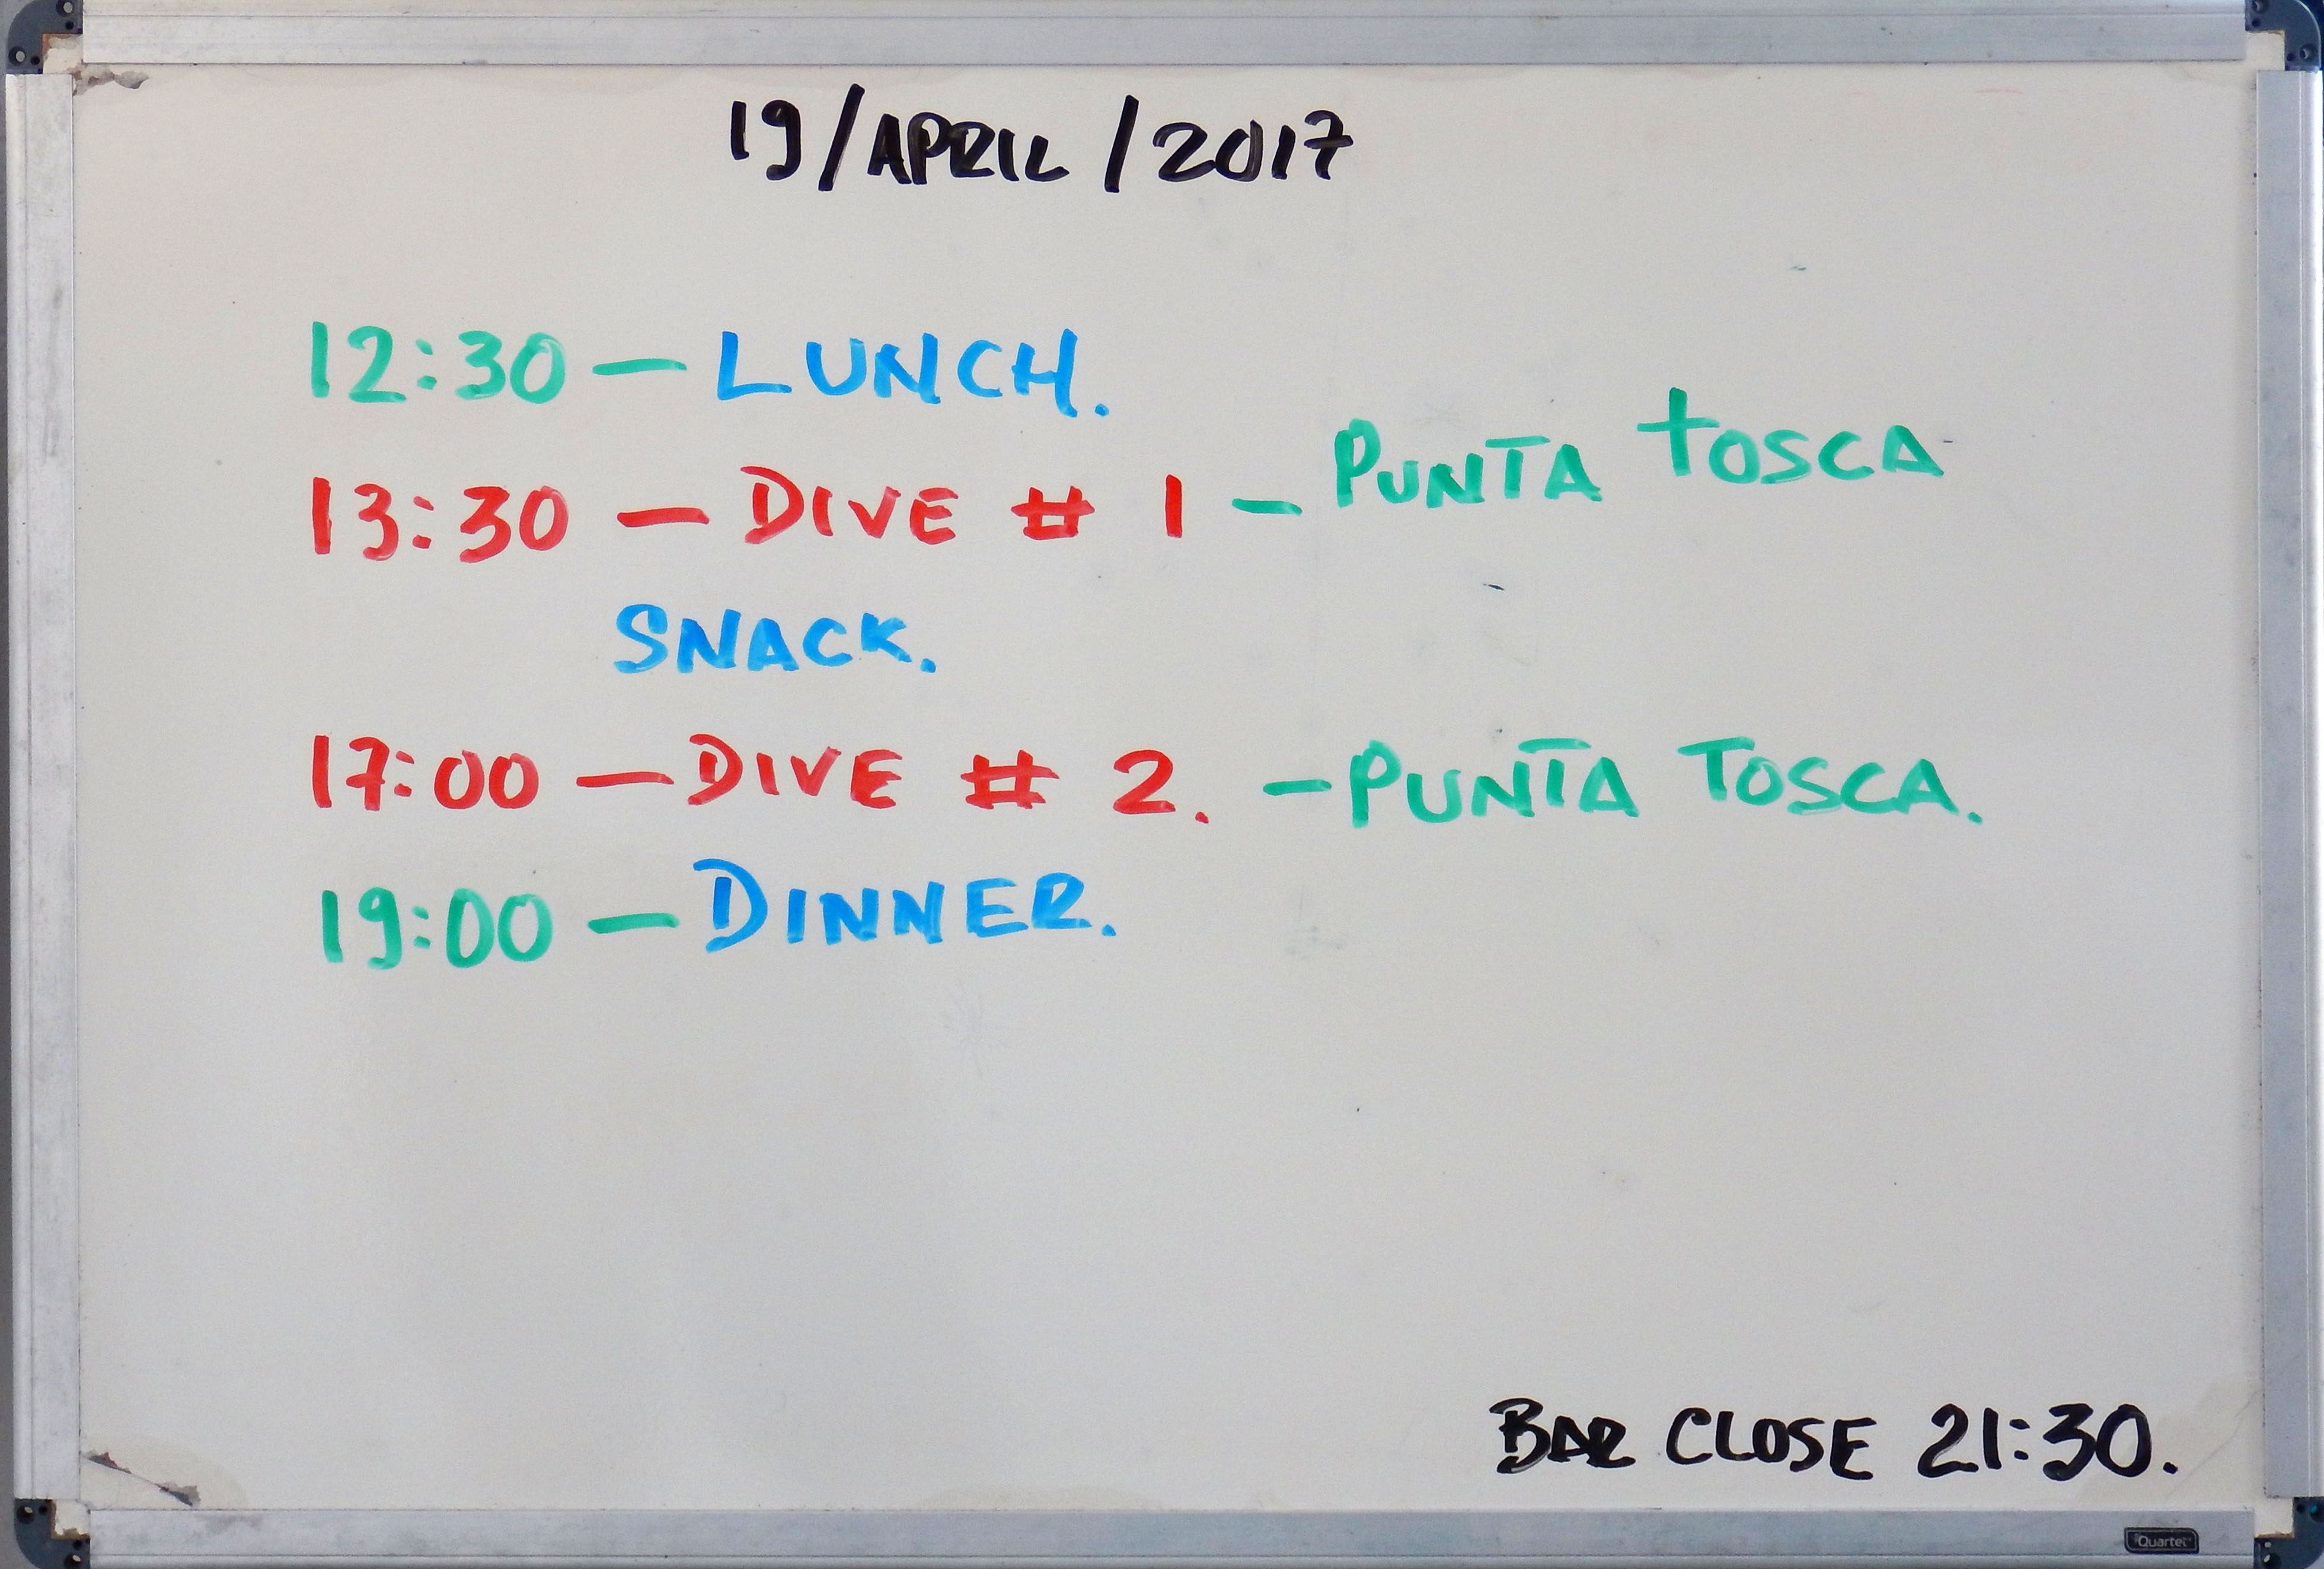 19/APRIL/2017
12:30 — LUNCH.
13:30 — DIVE # 1 - PUNTA TOSCA
SNACK.
17:00 — DIVE # 2. - PUNTA TOSCA.
19:00 — DINNER.
BAR CLOSE 21:30.
Quartet